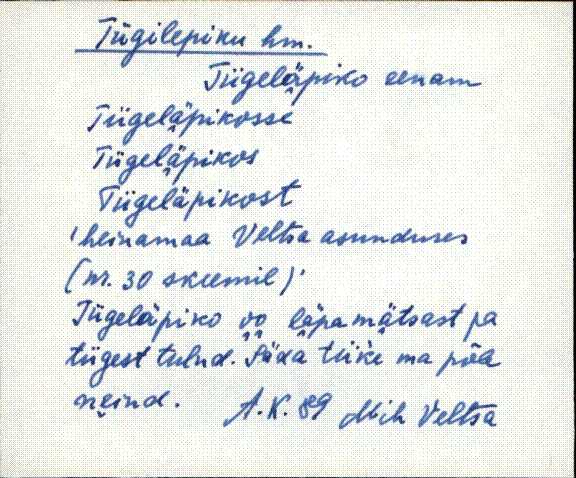 Tügilepiku hm.
Tügelä̬piko eenam
Tügelä̬pikosse
Tügelä̬pikos
Tügeläpikost
'heinamaa Veltsa asunduses
(nr. 30 skeemil)'
Tügeläpiko o̬o̬ lä̬pa mä̬tsast pa
tügest tulnd. Säda tüke ma põle
ne̬ind. A.K. 89 Mih Veltsa